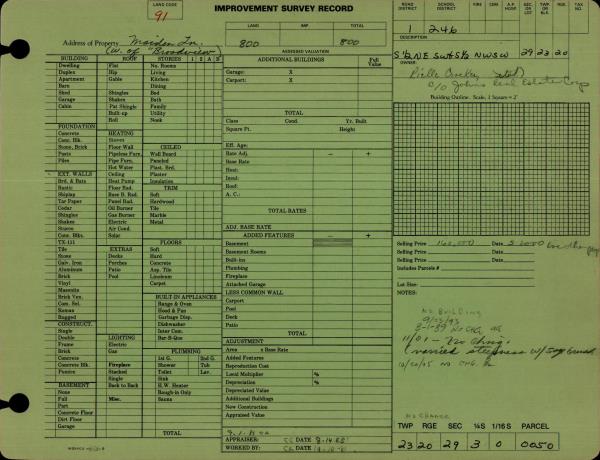 LAND CODE
91
IMPROVEMENT SURVEY RECORD
LAND IMP. TOTAL
800 800
ASSESSED VALUATION
Address of Property Maiden Ln.
(W. of "Broadview")
ROAD DISTRICT SCHOOL DISTRICT SEC OR LOT TWP OR BLK RG TAX NO.
1 246
DESCRIPTION
S½ NE SW & S½ NW SW 29 23 20
Building Outline. Scale, 1 Square = 2'
BUILDING
Dwelling
Duplex
Apartment
Barn
Shed
Garage
Cabin
ROOF
Flat
Hip
Gable
Shingles
Shakes
Pat Shingle
Built-up
Roll
STORIES 1 2 A B
No. Rooms
Living
Kitchen
Dining
Bed
Bath
Family
Utility
Nook
FOUNDATION
Concrete
Conc. Blk.
Stone, Brick
Posts
Piles
HEATING
Stoves
Floor Wall
Pipeless Furn.
Pipe Furn.
Hot Water
Ceiling
Heat Pump
Floor Rad.
Base B. Rad.
Oil Burner
Gas Burner
Electric
Air Cond.
Solar
CEILED
Wall Board
Paneled
Plast. Brd.
Plaster
Insulation
TRIM
Soft
Hardwood
Tile
Marble
Metal
EXT. WALLS
Brd. & Bats
Rustic
Shiplap
Tar Paper
Cedar
Shingles
Shakes
Stucco
Conc. Blks.
TX-111
Tile
Stone
Galv. Iron
Aluminum
Brick
Vinyl
Masonite
Brick Ven.
Com. Sel.
Roman
Rugged
EXTRAS
Decks
Porches
Patio
Pool
FLOORS
Soft
Hard
Concrete
Asp. Tile
Linoleum
Carpet
BUILT IN APPLIANCES
Range & Oven
Hood & Fan
Garbage Disp.
Dishwasher
Inter Com.
Bar-B-Que
CONSTRUCT.
Single
Double
Frame
Brick
Concrete
Concrete Blk.
Pumice
LIGHTING
Electric
Gas
Fireplace
Stacked
Single
Back to Back
Misc.
PLUMBING
1st G. 2nd G.
Shower Tub
Toilet Lav.
Sink
H.W. Heater
Rough-in Only
Sauna
BASEMENT
None
Full
Part
Concrete Floor
Dirt Floor
Garage
TOTAL
ADDITIONAL BUILDINGS Full Value
Garage: X
Carport: X
TOTAL
Class Cond. Yr. Built
Square Ft. Height
Eff. Age:
Rate Adj. – +
Base Rate
Heat:
Insul:
Roof:
A. C.
TOTAL RATES
ADJ. BASE RATE
ADDED FEATURES – +
Basement
Basement Rooms
Built-ins
Plumbing
Fireplace
Attached Garage
LESS COMMON WALL
Carport
Pool
Deck
Patio
TOTAL
ADJUSTMENT
Area x Base Rate
Added Features
Reproduction Cost
Local Multiplier %
Depreciation %
Depreciated Value
Additional Buildings
New Construction
Appraised Value
APPRAISER:
WORKED BY:
Selling Price 160,000 Date
Selling Price Date
Includes Parcels #
Lot Size:
NOTES:
NO BUILDING
9/23/93
8-1-89 NO CHG.
11/01 - no chng.
10/20/05 NO CHG.
NO CHANGE
TWP RGE SEC ¼S 1/16 S PARCEL
23 20 29 3 0 0050